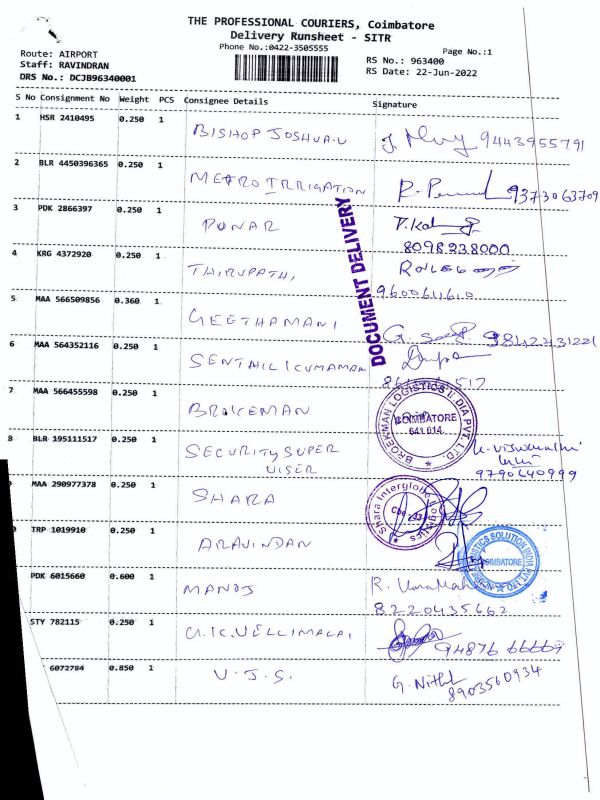 THE PROFESSIONAL COURIERS, Coimbatore
Delivery Runsheet - SITR
Phone No.:0422-3505555
Page No.:1
Route: AIRPORT
Staff: RAVINDRAN
DRS No.: DCJB96340001
RS No.: 963400
RS Date: 22-Jun-2022
S No Consignment No Weight PCS Consignee Details Signature
1 HSR 2410495 0.250 1 BISHOP JOSHUA.U 9443955791
2 BLR 4450396365 0.250 1 METRO IRRIGATION 9373063709
3 PDK 2866397 0.250 1 PONAR
8098238000
4 KRG 4372920 0.250 1 THIRUPATHI
9600611610
5 MAA 566509856 0.360 1 GEETHAMANI
6 MAA 564352116 0.250 1
7 MAA 566455598 0.250 1 BROKEMAN
8 BLR 195111517 0.250 1 SECURITY SUPER
VISER
9790640999
MAA 290977378 0.250 1 SHARA
TRP 1019910 0.250 1 ARAVINDAN
PDK 6015660 0.600 1 MANOJ
8220435662
STY 782115 0.250 1 G.K.VELLIMALAI 94876 66669
6072784 0.850 1 V.J.S. G. Nithi
8903560934
DOCUMENT DELIVERY
BROEKMAN LOGISTICS INDIA PVT. LTD.
COIMBATORE
641 014.
Shara Interglobe Logistics
LOGISTICS SOLUTION INDIA PVT LTD
COIMBATORE